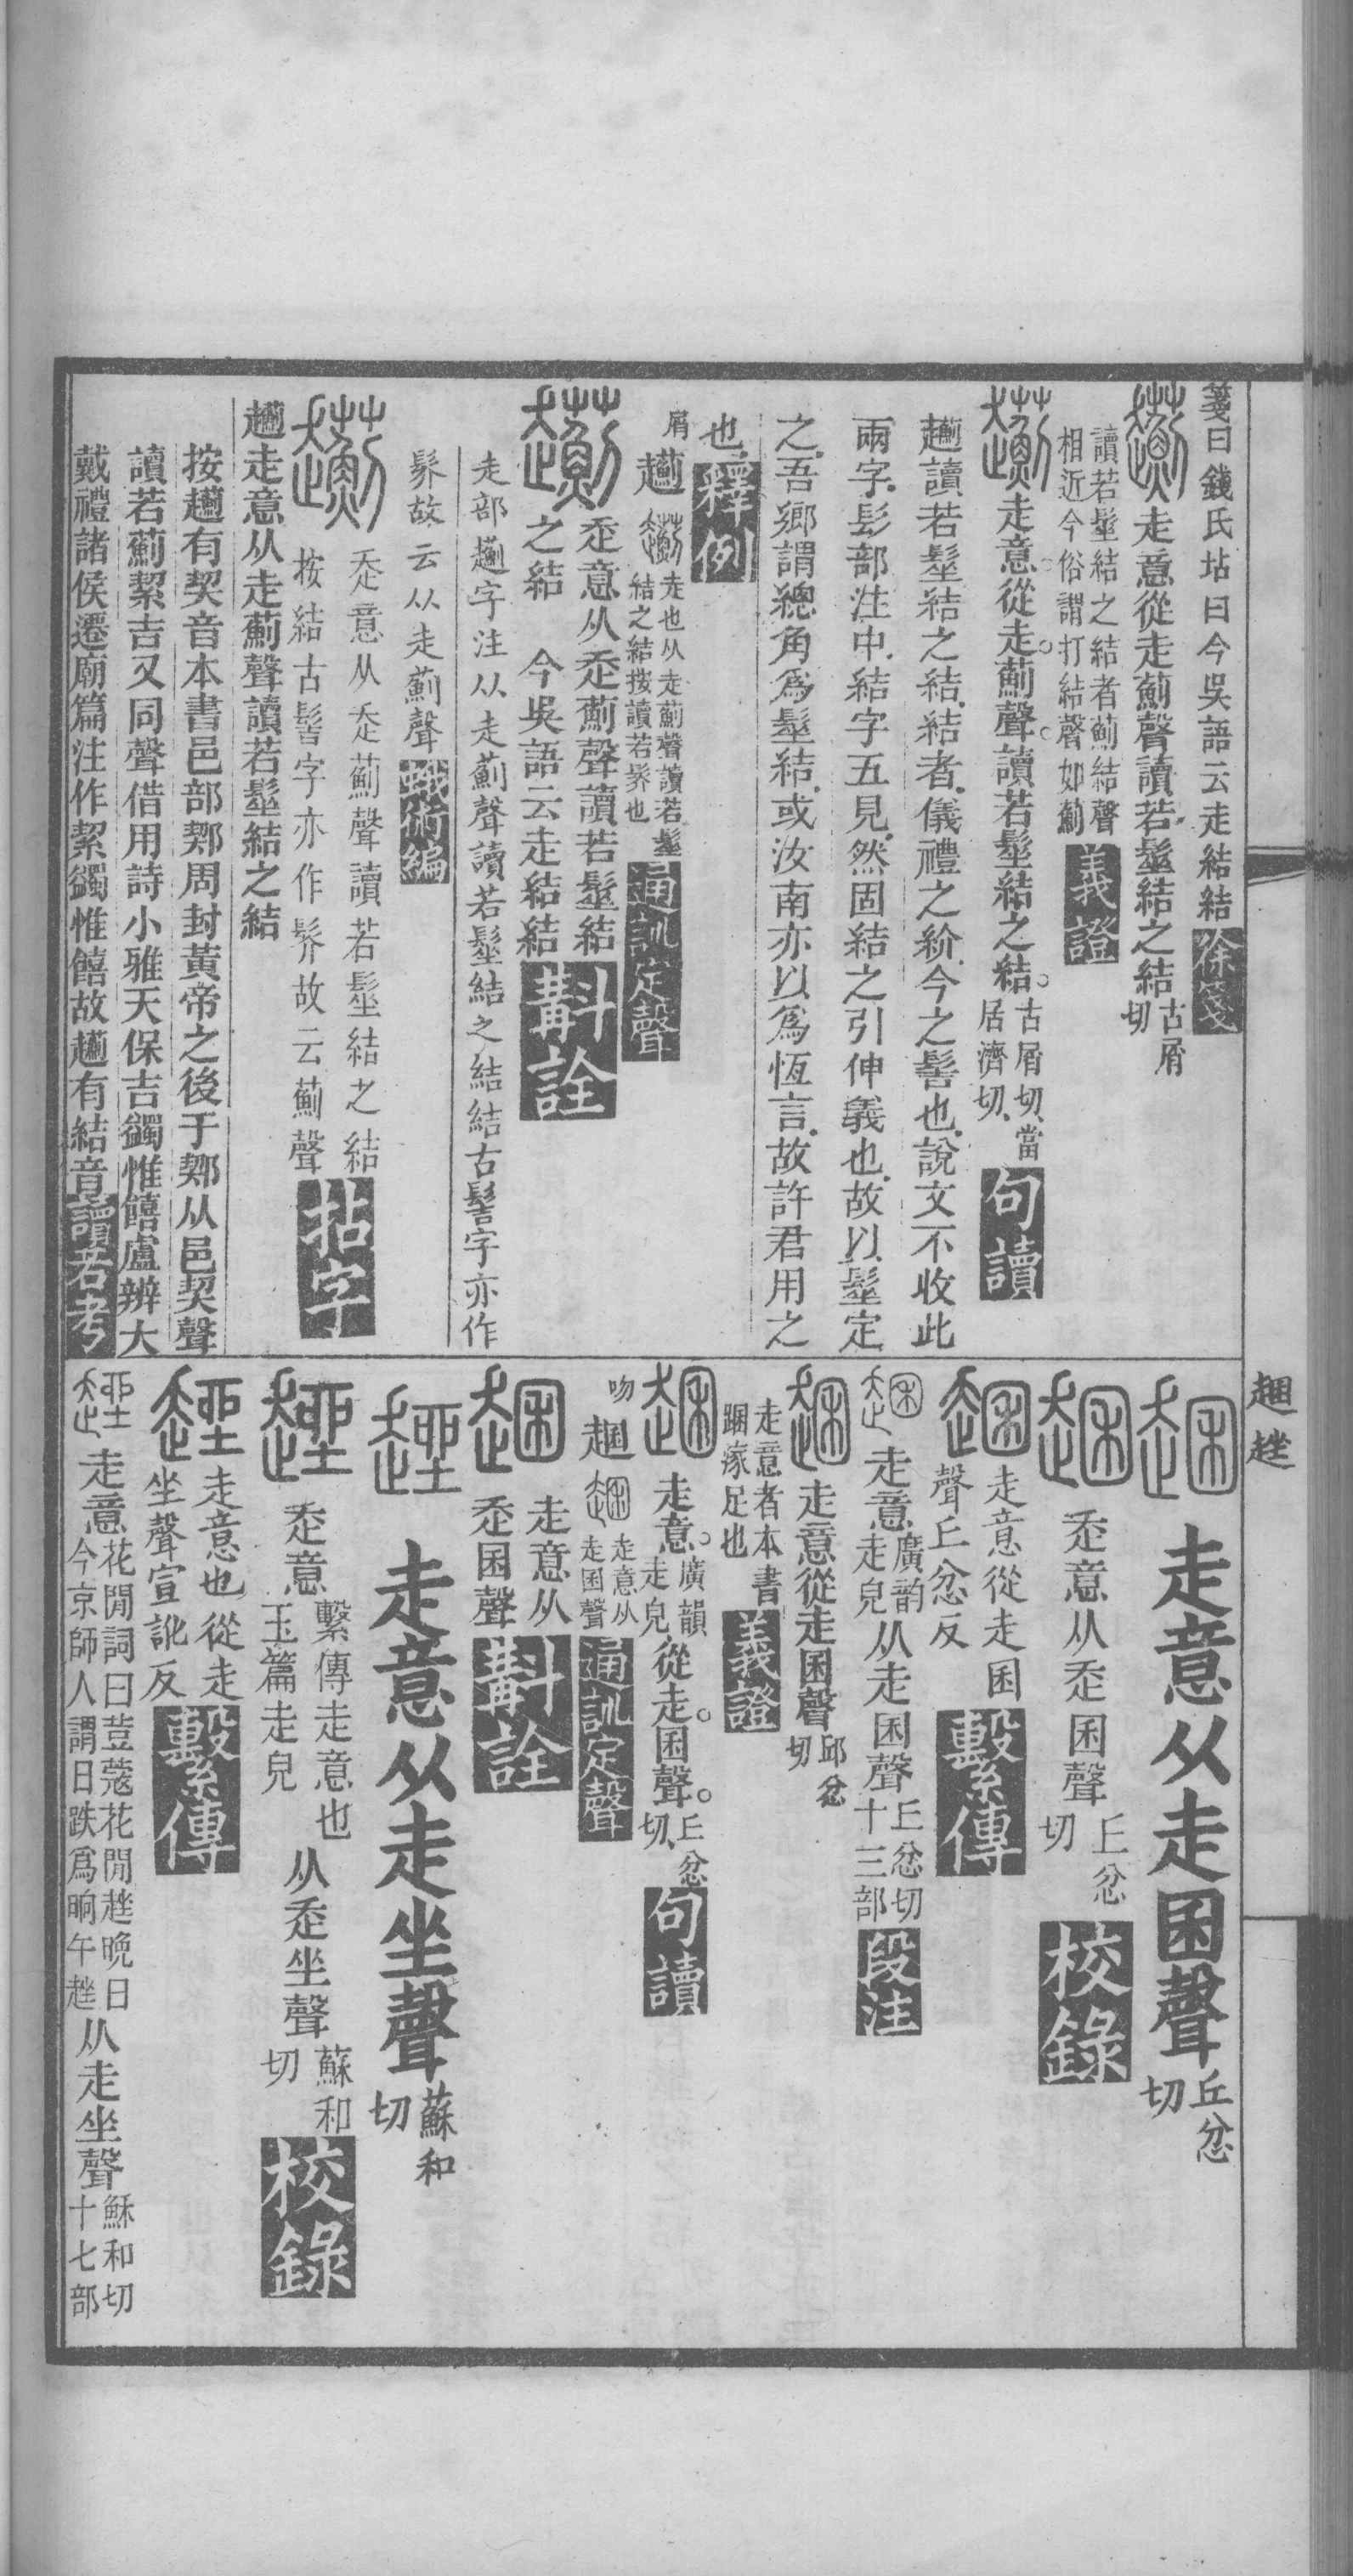 箋曰錢氏坫曰今吳語云走結結徐箋
走意從走薊聲讀若髽結之結古屑切
讀若髽結之結者薊結聲
相近今俗謂打結聲如薊義證
走意從走薊聲讀若髽結之結古屑切當居濟切句讀
趨讀若髽結之結結者儀禮之紒今之髻也說文不收此
兩字髟部注中結字五見然固結之引伸義也故以髽定
之吾鄉謂總角爲髽結或汝南亦以爲恆言故許君用之
也釋例
屑
走也从走薊聲讀若髽
結之結按讀若髤也通訓定聲
𧺆意从𧺆薊聲讀若髽結
之結 今吳語云走結結斠詮
走部字注从走薊聲讀若髽結之結結古髻字亦作
髤故云从走薊聲蛾術編
𧺆意从𧺆薊聲讀若髽結之結
按結古髻字亦作髤故云薊聲拈字
走意从走薊聲讀若髽結之結
按有契音本書邑部鄸周封黃帝之後于鄸从邑契聲
讀若薊絜吉又同聲借用詩小雅天保吉蠲惟饎盧辨大
戴禮諸侯遷廟篇注作絜蠲惟饎故有結音讀若考
走意从走困聲丘忿切
𧺆意从𧺆困聲丘忿切校錄
走意從走困
聲丘忿反繫傳
走意廣韵走皃从走困聲丘忿切十三部段注
走意從走困聲邱忿切
走意者本書
踞瘃足也義證
走意廣韻走皃從走困聲丘忿切句讀
吻
走意从
走困聲通訓定聲
走意从
𧺆困聲斠詮
走意从走坐聲蘇和切
𧺆意繫傳走意也玉篇走皃从𧺆坐聲蘇和切校錄
走意也從走
坐聲宣訛反繫傳
走意花閒詞曰荳蔻花閒趖晚日今京師人謂日跌爲晌午趖从走坐聲穌和切十七部
趖